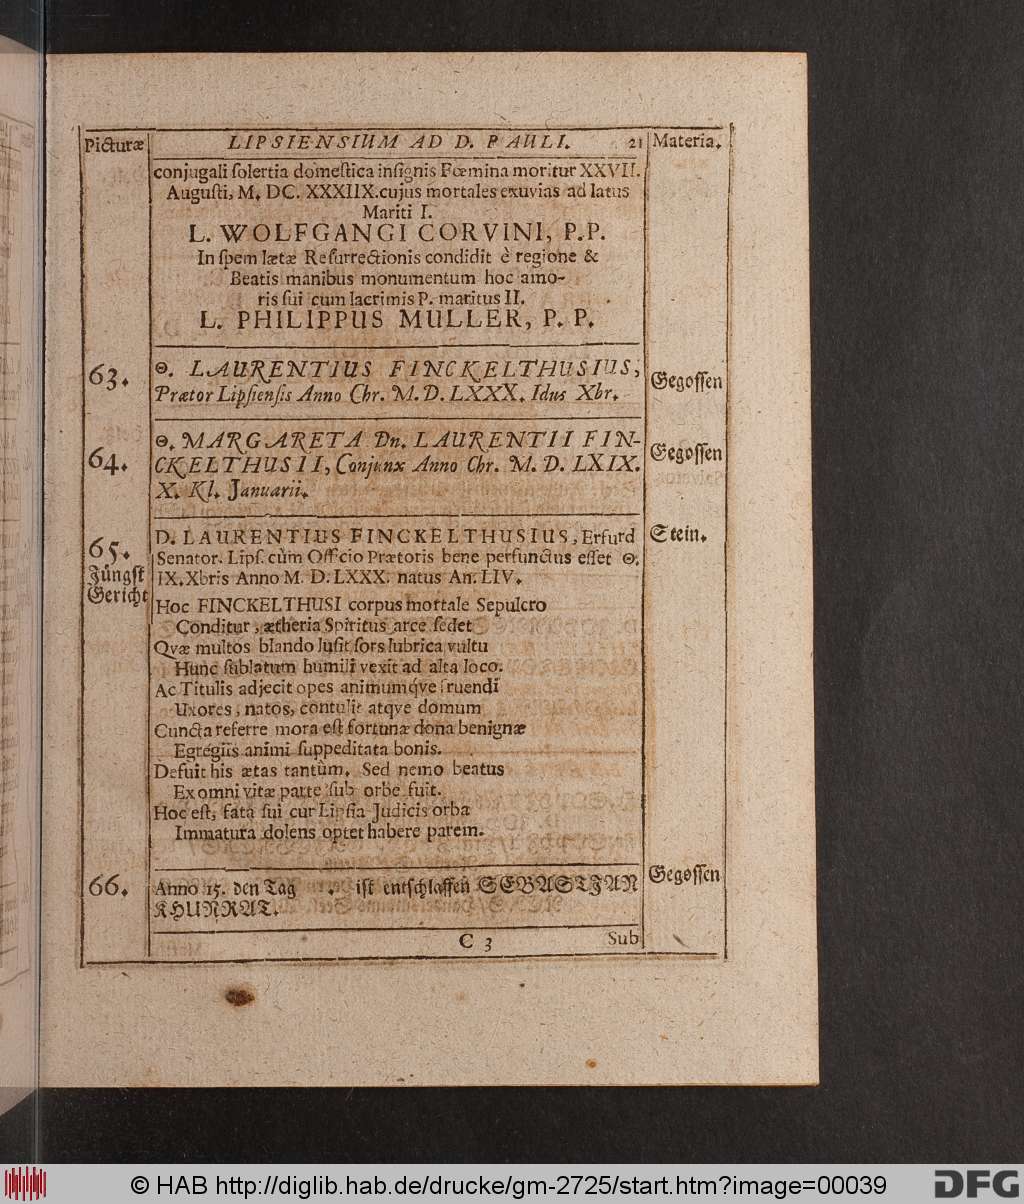 Picturæ LIPSIENSIUM AD D. PAULI. 21 Materia.
conjugali ſolertia domeſtica inſignis Fœmina moritur XXVII.
Auguſti, M. DC. XXXIIX. cujus mortales exuvias ad latus
Mariti I.
L. WOLFGANGI CORVINI, P. P.
In ſpem lætæ Reſurrectionis condidit è regione &
Beatis manibus monumentum hoc amo-
ris ſui cum lacrimis P. maritus II.
L. PHILIPPUS MULLER, P. P.
63. Θ. LAURENTIUS FINCKELTHUSIUS, Gegoſſen
Prætor Lipſienſis Anno Chr. M. D. LXXX. Idus Xbr.
64. Θ. MARGARETA Dn. LAURENTII FIN- Gegoſſen
CKELTHUSII, Conjunx Anno Chr. M. D. LXIX.
X. Kl. Januarii.
65. D. LAURENTIUS FINCKELTHUSIUS, Erfurd Stein.
Jüngſt Senator. Lipſ. cùm Officio Prætoris bene perfunctus eſſet Θ.
Gericht IX. Xbris Anno M. D. LXXX. natus An. LIV.
Hoc FINCKELTHUSI corpus mortale Sepulcro
Conditur, ætheria Spiritus arce ſedet
Qvæ multos blando luſit ſors lubrica vultu
Hunc ſublatum humili vexit ad alta loco.
Ac Titulis adjecit opes animumq́ve fruendi
Uxores, natos, contulit atqve domum
Cuncta referre mora eſt fortunæ dona benignæ
Egregiis animi ſuppeditata bonis.
Defuit his ætas tantùm. Sed nemo beatus
Ex omni vitæ parte ſub orbe fuit.
Hoc eſt, fata ſui cur Lipſia Judicis orba
Immatura dolens optet habere parem.
66. Anno 15. den Tag . iſt entſchlaffen SEBASTJAN Gegoſſen
KHUNRAT.
C 3 Sub
© HAB http://diglib.hab.de/drucke/gm-2725/start.htm?image=00039 DFG